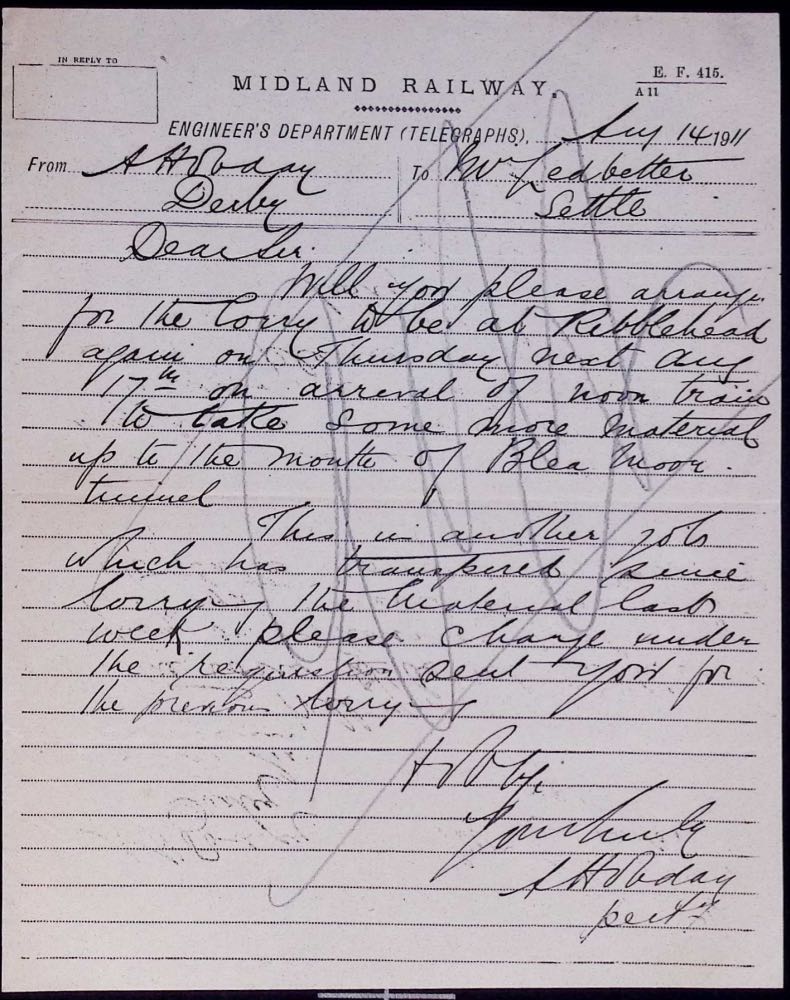 IN REPLY TO
E. F. 415.
A 11
MIDLAND RAILWAY.
ENGINEER'S DEPARTMENT (TELEGRAPHS), Aug 14 1911
From A Hobday To Mr Ledbetter
Derby Settle
Dear Sir.
Will you please arrange
for the lorry to be at Ribblehead
again on Thursday next Aug
17th on arrival of noon train
to take some more material
up to the mouth of Blea Moor
tunnel
This is another job
which has transpired since
lorrying the material last
week please charge under
the requisition sent you for
the previous lorrying
Yours truly
A Hobday